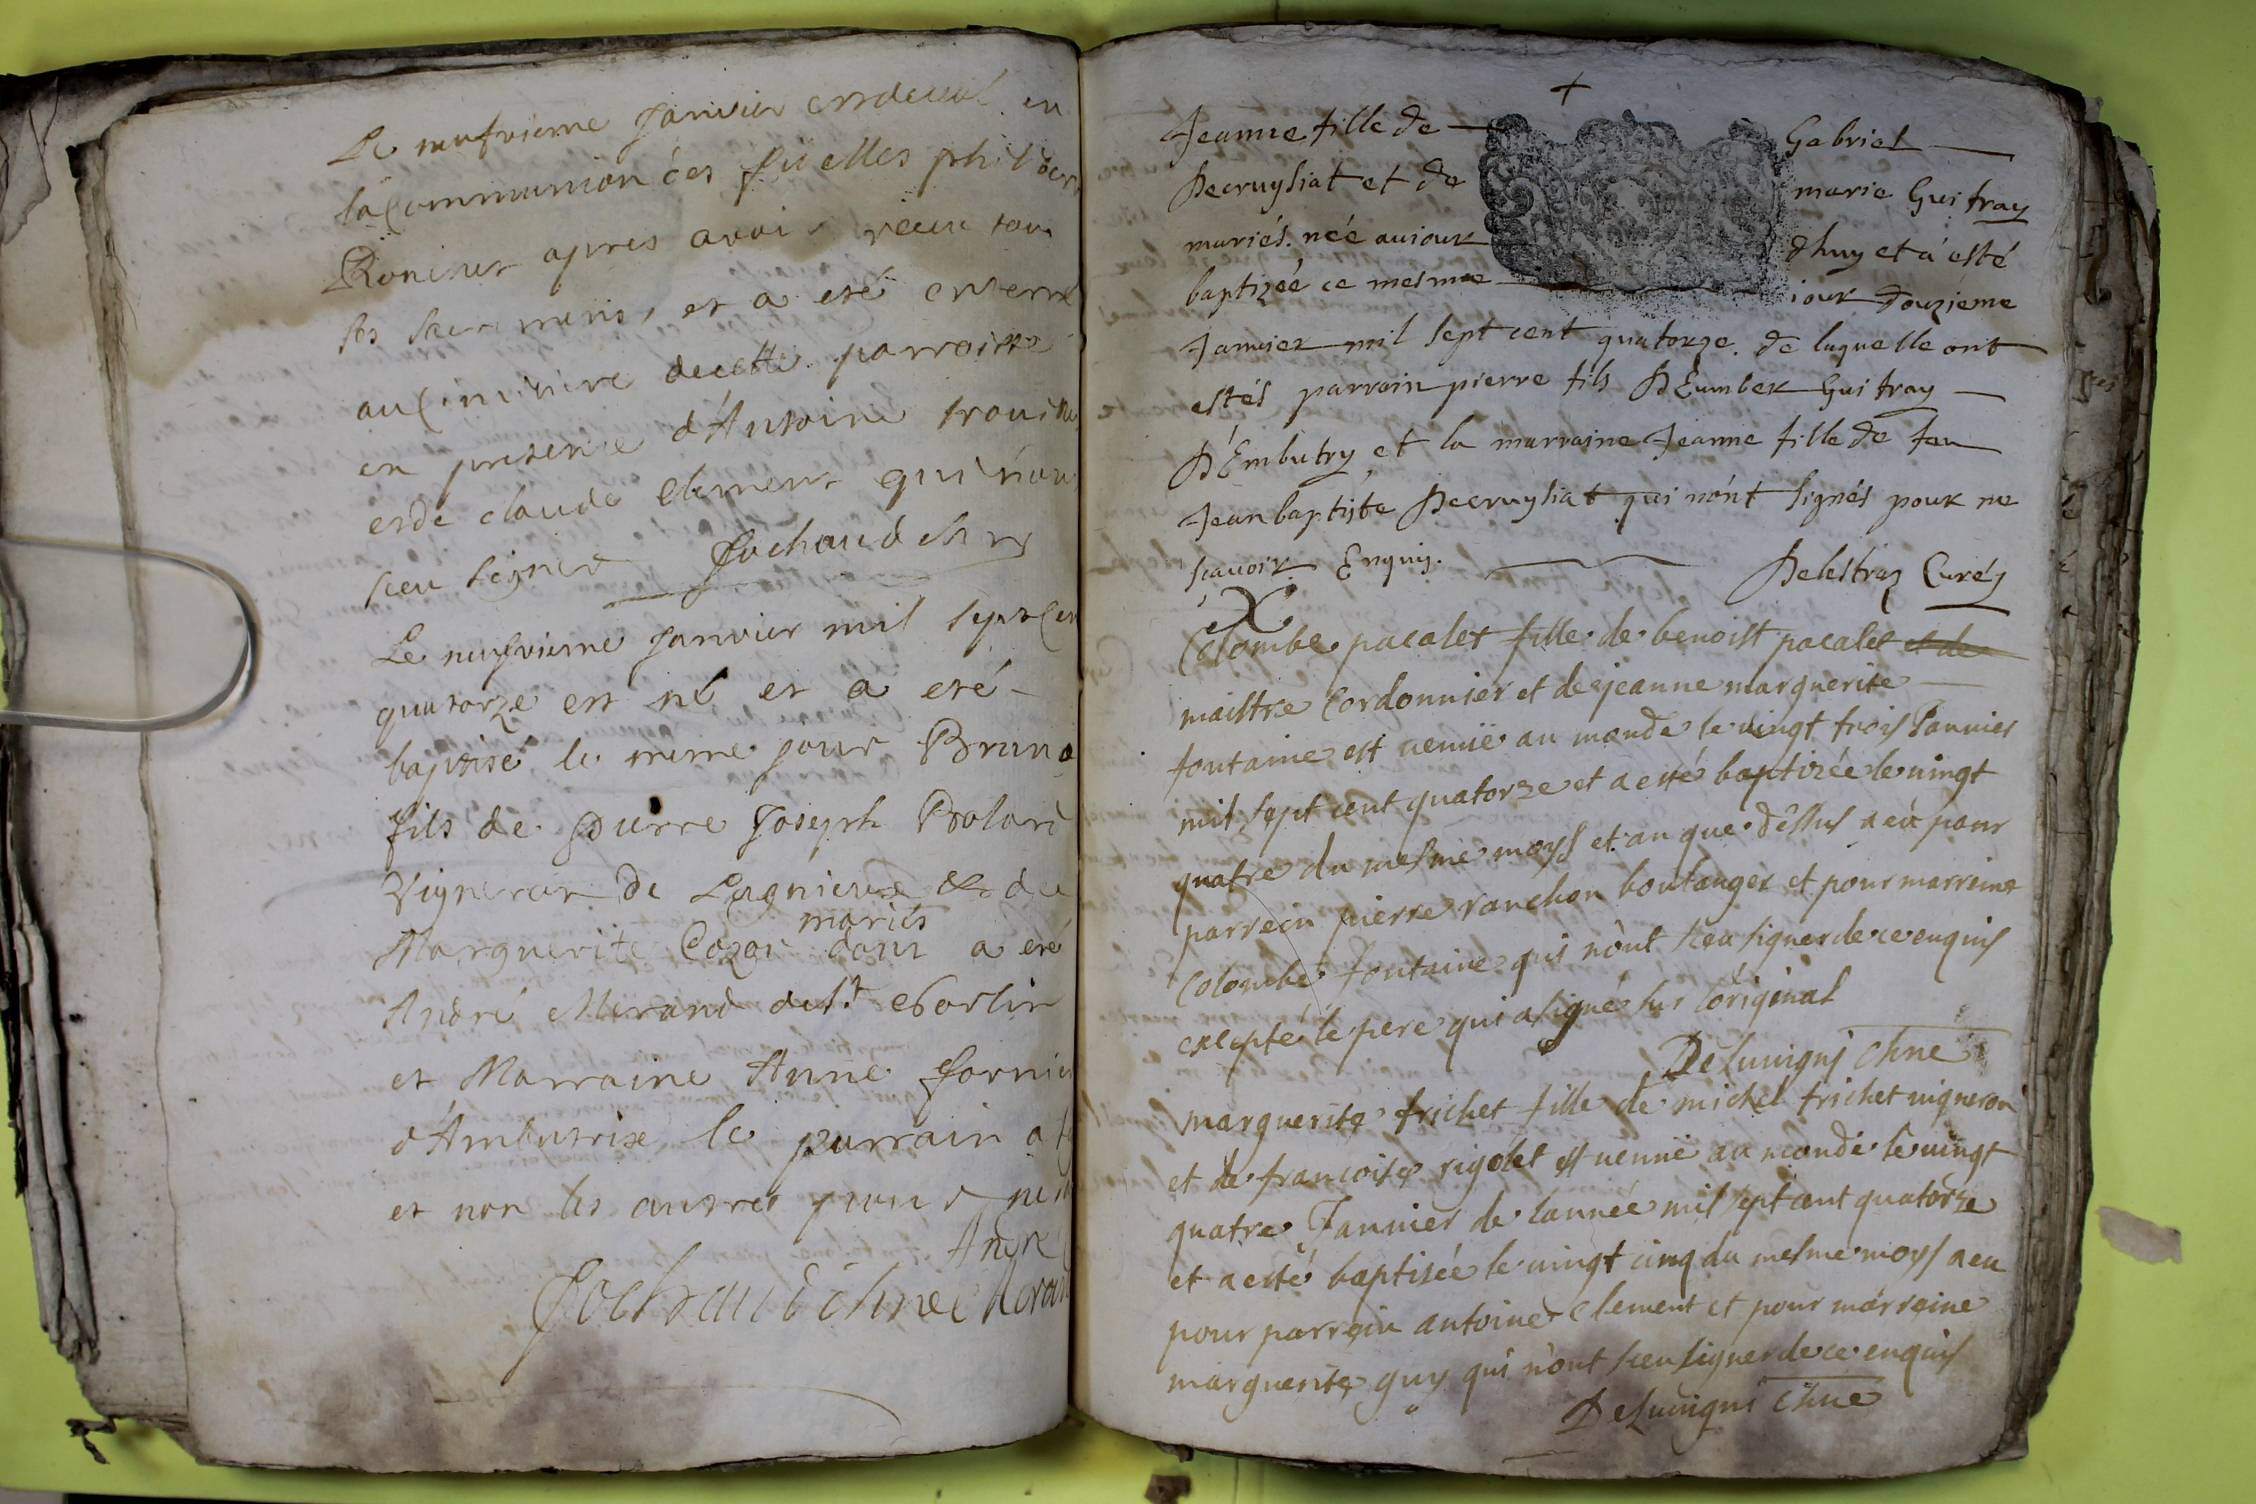 Le neufvieme Janvier est decedé en
la Communion des fidelles phil
apres avoir receu tous
les sacremens, et a eté enterré
au Cimitiere de cette parroisse
en presence d'Antoine
et de claude Clement qui n'ont
sceu signer Jochaud chne
Le neufvieme Janvier mil sept Cen
quatorze est né et a eté
baptisé le meme jour Bruno
fils de Pierre Joseph
Vigneron de Lagnieux et de
mariés
Marguerite Cozon dont a eté
André Merand de St. Sorlin
et Marraine Anne fornie
d'Ambutrix le parrain a
et non les autres pour ne
André
Jochaud chne Merand
+
Jeanne fille de Gabriel
Decruysiat et de marie Guitray
mariés. née aujour dhuy et a esté
baptizée ce mesme iour douzieme
Janvier mil sept cent quatorze. de laquelle ont
estés parrain pierre fils D'Eumber Guitray
D'Embutry et la marraine Jeanne fille de feu
Jean baptiste Decruysiat qui nónt signés pour ne
scavoir Enquis. Delestraz Curéz
Colombe pacalet fille de benoist pacalet et de
maistre Cordonnier et de jeanne marguerite
fontaine est venuë au monde le vingt trois Januier
mil sept cent quatorze et a esté baptizée le vingt
quatre du mesme moys et an que dêssus a eû pour
parrein pierre ranchon boulanger et pour marreine
Colombe fontaine qui nónt sceu signer de ce enquis
excepté le pere qui a signé sur lóriginal
Deluuigni chne
marguerite frichet fille de michel frichet vigneron
et de francoise rigolet est venuë au monde le vingt
quatre Januier de lannée mil sept cent quatorze
et a esté baptisée le vingt cinq du mesme moys a eu
pour parrein antoine Clement et pour marreine
marguerite guy qui n'ont sceu signer de ce enquis
Deluuigni chne